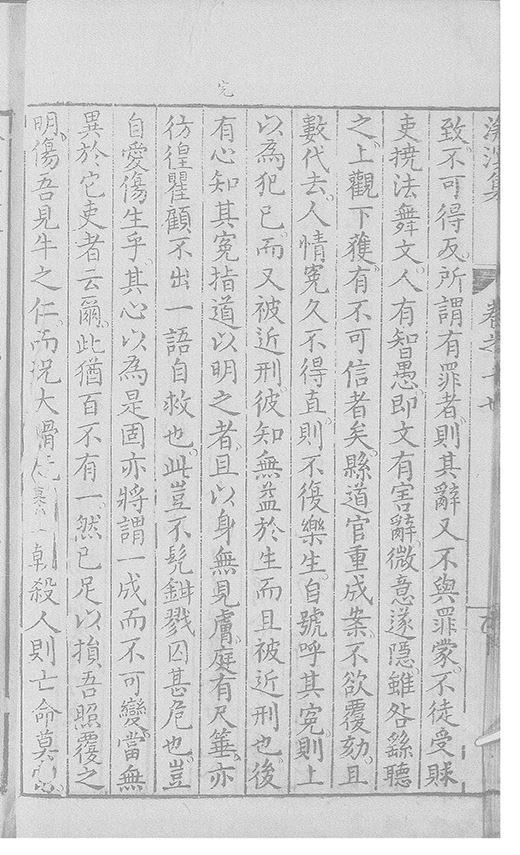 完
集
卷之十
致不可得反所謂有罪者則其辭又不與罪蒙不徒受賕
吏撓法舞文人有智愚即文有害辭微意遂隱雖咎繇聽
之上觀下獲有不可信者矣縣道官重成案不欲覆劾且
數代去人情冤久不得直則不復樂生自號呼其冤則上
以為犯已而又被近刑彼知無益於生而且被近刑也後
有心知其冤指道以明之者且以身無見膚庭有尺箠亦
彷徨瞿顧不出一語自救也此豈不髡鉗戮囚甚危也豈
自愛傷生乎其心以為是固亦將謂一成而不可變當無
異於它吏者云爾此猶百不有一然已足以損吾照覆之
明傷吾見牛之仁而況大猾殺人則亡命莫